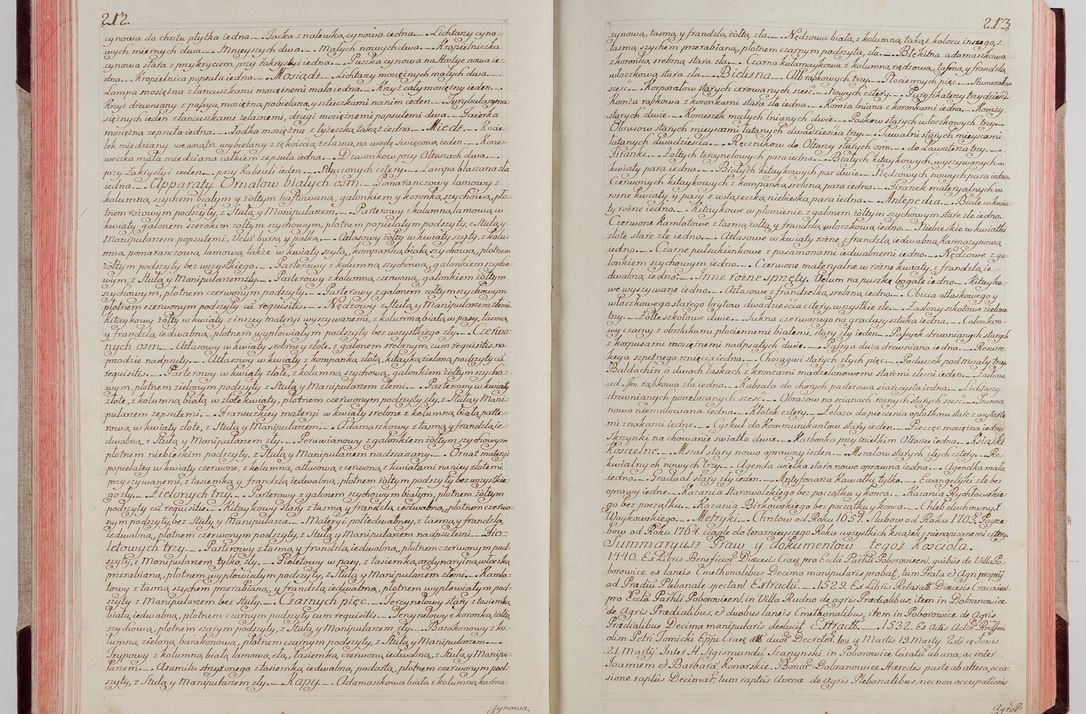 212.
cynowa do chrztu płytka iedna. — Tacka z nalewką cynowa iedna. — Lichtarzy cyno-
wych miernych dwa. — Mnieyszych dwa. — Małych nowych dwa. — Kropielniczka
cynowa stara z przykryciem przy zakrystyi iedna. — Puszka cynowa na Hostye nowa ie-
dna. — Kropielnica popsuta iedna. — Mosiądz. — Lichtarzy mosiężnych małych dwa.
Lampa mosiężna z łancuszkami mosiężnemi mała iedna. — Krzyż cały mosiężny ieden.
Krzyż drewniany z passyą mosiężną pobielaną y sztuczkami na nim ieden. — Trybularz mo-
siężnych ieden z łancuszkami żelaznemi, drugi mosiężnemi popsutemi dwa. — Tacerka
mosiężna zepsuta iedna. — Łodka mosiężna z łyżeczką takąż iedna. — Miedź. — Kocie-
łek miedziany we wnątrz wybielany z rękoiścią żelazną, na wodę święconą, ieden. — Kone-
weczka mała miedziana całkiem zepsuta iedna. — Dzwonkow przy Ołtarzach dwa.
przy Zakrystyi ieden. — przy Kapsuli ieden. — Stłuczonych cztery. — Lampa blaszana zła
iedna. — Apparaty. Ornatow białych osm. — Pomarańczowy lamowy z
kolumną, szychem białym y żołtym haftowaną, galonkiem y koronką szychową, płó-
tnem rożowym podszyty, z Stułą y Manipularzem. — Parterowy z kolumną lamową w
kwiaty, galonem szerokim żołtym szychowym, płotnem popielatym podszyty, z Stułą y
Manipularzem popsutemi, Velu bursą y palką. — Atłasowy żołty w kwiaty szyty, z kolu-
mną pomarańczową, lamową, także w kwiaty szytą, kompanką białą szychową, płotnem
żołtym podszyty bez wszystkiego. — Parterowy z kolumną szychową, galonkiem szycho-
wym, z Stułą y Manipularzem zły. — Parterowy z kolumną czerwoną, galonkiem żołtym
szychowym, płotnem czerwonym podszyty. — Parterowy galonem żołtym szychowym,
płotnem czerwonym podszyty cũ requisitis. — Nędzowy z Stułą y Manipularzem złemi.
Kitaykowy żołty w kwiaty z inszey materyi wyszywanemi, z kolumną białą w pasy, tasmą
y frandzlą iedwabną, płotnem wypłowiałym podszyty bez wszystkiego zły. — Czerwo-
nych osm. — Atłasowy w kwiaty srebrne y złote, z galonem srebrnym, cum requisitis na
przodzie nadpsuty. — Atłasowy w kwiaty z kompanką złotą, kitayką zieloną podszyty cũ
requisitis. — Parterowy w kwiaty złote, z kolumną szychową, galonkiem żołtym szycho-
wym, płotnem zielonym podszyty, z Stułą y Manipularzem złemi. — Parterowy w kwiaty
złote, z kolumną białą w złote kwiaty, płotnem czerwonym podszyty zły, z Stułą y Mani-
pularzem zepsutemi. — Francuzkiey materyi w kwiaty srebrne z kolumną białą parte-
rową, w kwiaty złote, z Stułą y Manipularzem. — Adamaszkowy z tasmą y frandzlą ie-
dwabną, z Stułą y Manipularzem zły. — Peruwianowy z galonkiem żołtym szychowym
płotnem niebieskim podszyty, z Stułą y Manipularzem nadrzazany. — Ornat materyi
popielatey w kwiaty czerwone, z kolumną atłasową czerwoną, z kwiatami na niey złotemi
przyszywanemi, z tasiemką y frandzlą iedwabną, płotnem żołtym podszyty bez wszystkie-
go zły. — Zielonych trzy. — Parterowy z galonem szychowym białym, płotnem żołtym
podszyty cũ requisitis. — Kitaykowy stary z tasmą y frandzlą iedwabną, płotnem czerwo-
nym podszyty, bez Stuły y Manipularza. — Materyi półiedwabney, z tasmą y frandzlą
iedwabną, płotnem czerwonym podszyty, z Stułą y Manipularzem nadpsutemi. — Fio-
letowych trzy. — Parterowy z tasmą y frandzlą iedwabną, płotnem czerwonym pod-
szyty, z Manipularzem tylko zły. — Fioletowy w pasy, z tasiemką ordynaryiną włoczką
przerabianą, płotnem wypłowiałym podszyty, z Stułą y Manipularzem złemi. — Kamlo-
towy z tasmą szychem przerabianą, y frandzlą iedwabną, płotnem wypłowiałym pod-
szyty z Manipularzem bez Stuły. — Czarnych pięc. — Terzynelowy stary z tasiemką
białą iedwabną, płotnem czarnym podszyty cum requisitis. — Terzynelowy z koronką złotą
szychową, płotnem szarym podszyty, z Stułą y Manipularzem zły. — Barakanowy z ko-
lumną zieloną barakanową, płotnem żołtym podszyty, z Stułą y Manipularzem. —
Trypowy z kolumną białą lamową, złą, tasiemką czerwoną iedwabną, z Stułą y Manipu-
larzem. — Axamitu strzyżonego z tasiemką iedwabną, podartą, płotnem czerwonym pod-
szyty, z Stułą y Manipularzem zły. — Kapy. — Adamaszkowa biała z kolumną karma-
zynową
213.
zynową, tasmą y frandzlą żołtą zła. — Nędzowa biała, z kolumną takąż koloru inszego, z
tasmą szychem przerabianą, płotnem czarnym podszyta, zła. — Błękitna adamaszkowa
z koronką srebrną stara zła. — Czarna kałamaykowa z kolumną nędzową, tasmą, y frandzlą
włoczkową stara zła. — Bielizna. — Alb rąbkowych trzy. — Płociennych pięc. — Humerałow
szesc. — Korporałow starych cerowanych szesc. — Nowych cztery. — Puryfikaterzy trzydziesci.
Komża rąbkowa z koronkami stara zła iedna. — Komża lniana z koronkami iedna. — Komży
starych dwie. — Komeszek małych lnianych dwie. — Paskow starych włoczkowych trzy.
Obrusow starych mieyscami łatanych dwadziescia trzy. — Tuwalni starych mieyscami
łatanych dwadziescia. — Ręcznikow do Ołtarzy starych osm. — do Lavaterza trzy.
Firanki. — Żołtych terzynelowych para iedna. — Białych kitaykowych, wyszywanych w
kwiaty para iedna. — Białych kitaykowych par dwie. — Nędzowych nowych para iedna.
Czerwonych kitaykowych z kompanką srebrną, para iedna. — Firanek materyalnych w
rożne kwiaty, y pasy z wstążeczką niebieską para iedna. — Antepedia. — Białe w kwia-
ty rożne iedno. — Kitaykowe w płomienie z galonem żołtym szychowym stare złe iedno.
Czerwone Kamlotowe z tasmą żołtą y frandzlą włoczkową iedno. — Niebieskie w kwiatki
złote stare złe iedno. — Atłasowe w kwiaty rożne z frandzlą iedwabną karmazynową
iedno. — Czarne pestuchienkowe z pasamonami iedwabnemi iedno. — Nędzowe z ga-
lonkiem szychowym iedno. — Czerwone materyalne w rożne kwiaty, z frandzlą ie-
dwabną iedno. — Inne rożne sprzęty. Velum na puszkę bogate iedno. — Kitayko-
we wyszywane iedno. — Atłasowe z frandzelką srebrną iedno. — Obicia atłaskowego y
włoczkowego starego brytow dwadziescia cztery wszystkie złe. — Zasłony szkotowe zielone
trzy. — Żołte szkotowe dwie. — Sukna czerwonego na gradusy sztuka iedna. — Całonkow-
wy czarny z obrąbkami płociennemi białemi stary zły ieden. — Passyjek drewnianych starych
z korpusami mosiężnemi nadpsutych dwie. — Passya duża drewniana iedna. — Resurre-
keya szpetnego znięcia iedna. — Chorągwi starych złych pięc. — Poduszek pod mszały trzy.
Baldachin o dwoch laskach z krocami nadzielonowemi staremi złemi ieden. — Zasłona
ad Sm rąbkowa zła iedna. — Kapsula do chorych parterowa siatą szyta iedna. — Lichtarzy
drewnianych posrebrzanych szesc. — Obrazow na scianach rożnych starych szesc. — Trunna
nowa niemalowana iedna. — Kłotek cztery. — Żelaza do pieczenia opłatkow stare z wszystkie-
mi znakami iedne. — Cyrkuł do kommunikantow stary ieden. — Pieczęc mosiężna iedna.
Skrzynki na chowanie swiatła dwie. — Karbonka przy wielkim Ołtarzu iedna. — Ksiąszki
Koscielne. — Mszał stary nowo oprawny ieden. — Mszałow starych złych cztery. — Re-
kwialnych nowych trzy. — Agenda wielka stara nowo oprawna iedna. — Agendka mała
iedna. — Graduał stary zły ieden. — Antyfonarza kawałki tylko. — Ewangeliczki złe bez
oprawy iedne. — Kazania Starowolskiego bez początku y konca. — Kazania Rychłowskie-
go bez początku. — Kazania Birkowskiego bez początku y konca. — Chleb duchowny X.
Woyckowskiego. — Metryki. — Chrztow od Roku 1654. Slubow od Roku 1703. Pogrze-
bow od Roku 1764. ciągle do teraznieyszego Roku wszystkich ksiąszek nieoprawnemi cztery.
Summaryusz Praw y Dokumentow tegoz koscioła.
1440. Ex Libris Beneficior Diæcesis Crac. pro Eccla Parlli Poborovicen. quibus de Villa Po-
borowice ex laneis Cmethonalibus Decima manipularis probat, tum Prata et Agri proprij
ad Prædiũ Plebanale spectant Extractũ. — 1529. Ex Libris Retaxatẽ Diæcesis Cracovien.
pro Eccla Parlli Poborovicen. in Villa Rudno de agris Prædialibus, item in Dobranowice
de Agris Prædialibus, et duobus laneis Cmethonalibus, item in Poborowice de Agris
Prædialibus Decima manipularis deducit. Extractũ. — 1532. Ex Actis
olim Petri Tomicki Eppi Crac. ett duor Decretor. una 19 Martis 19. Martij. Edi et Jovis
21. Martij. Inter H. Sigismundũ Scarynski in Poborowice Curatũ ab una, ac inter
Joannem et Barbarã Konarskie, Bonor Dobranowice Hæredes parte ab altera, occa-
sione raptus Decimar, tum raptus Avenæ de Agris Plebanalibus, nec non occupationis
Agror